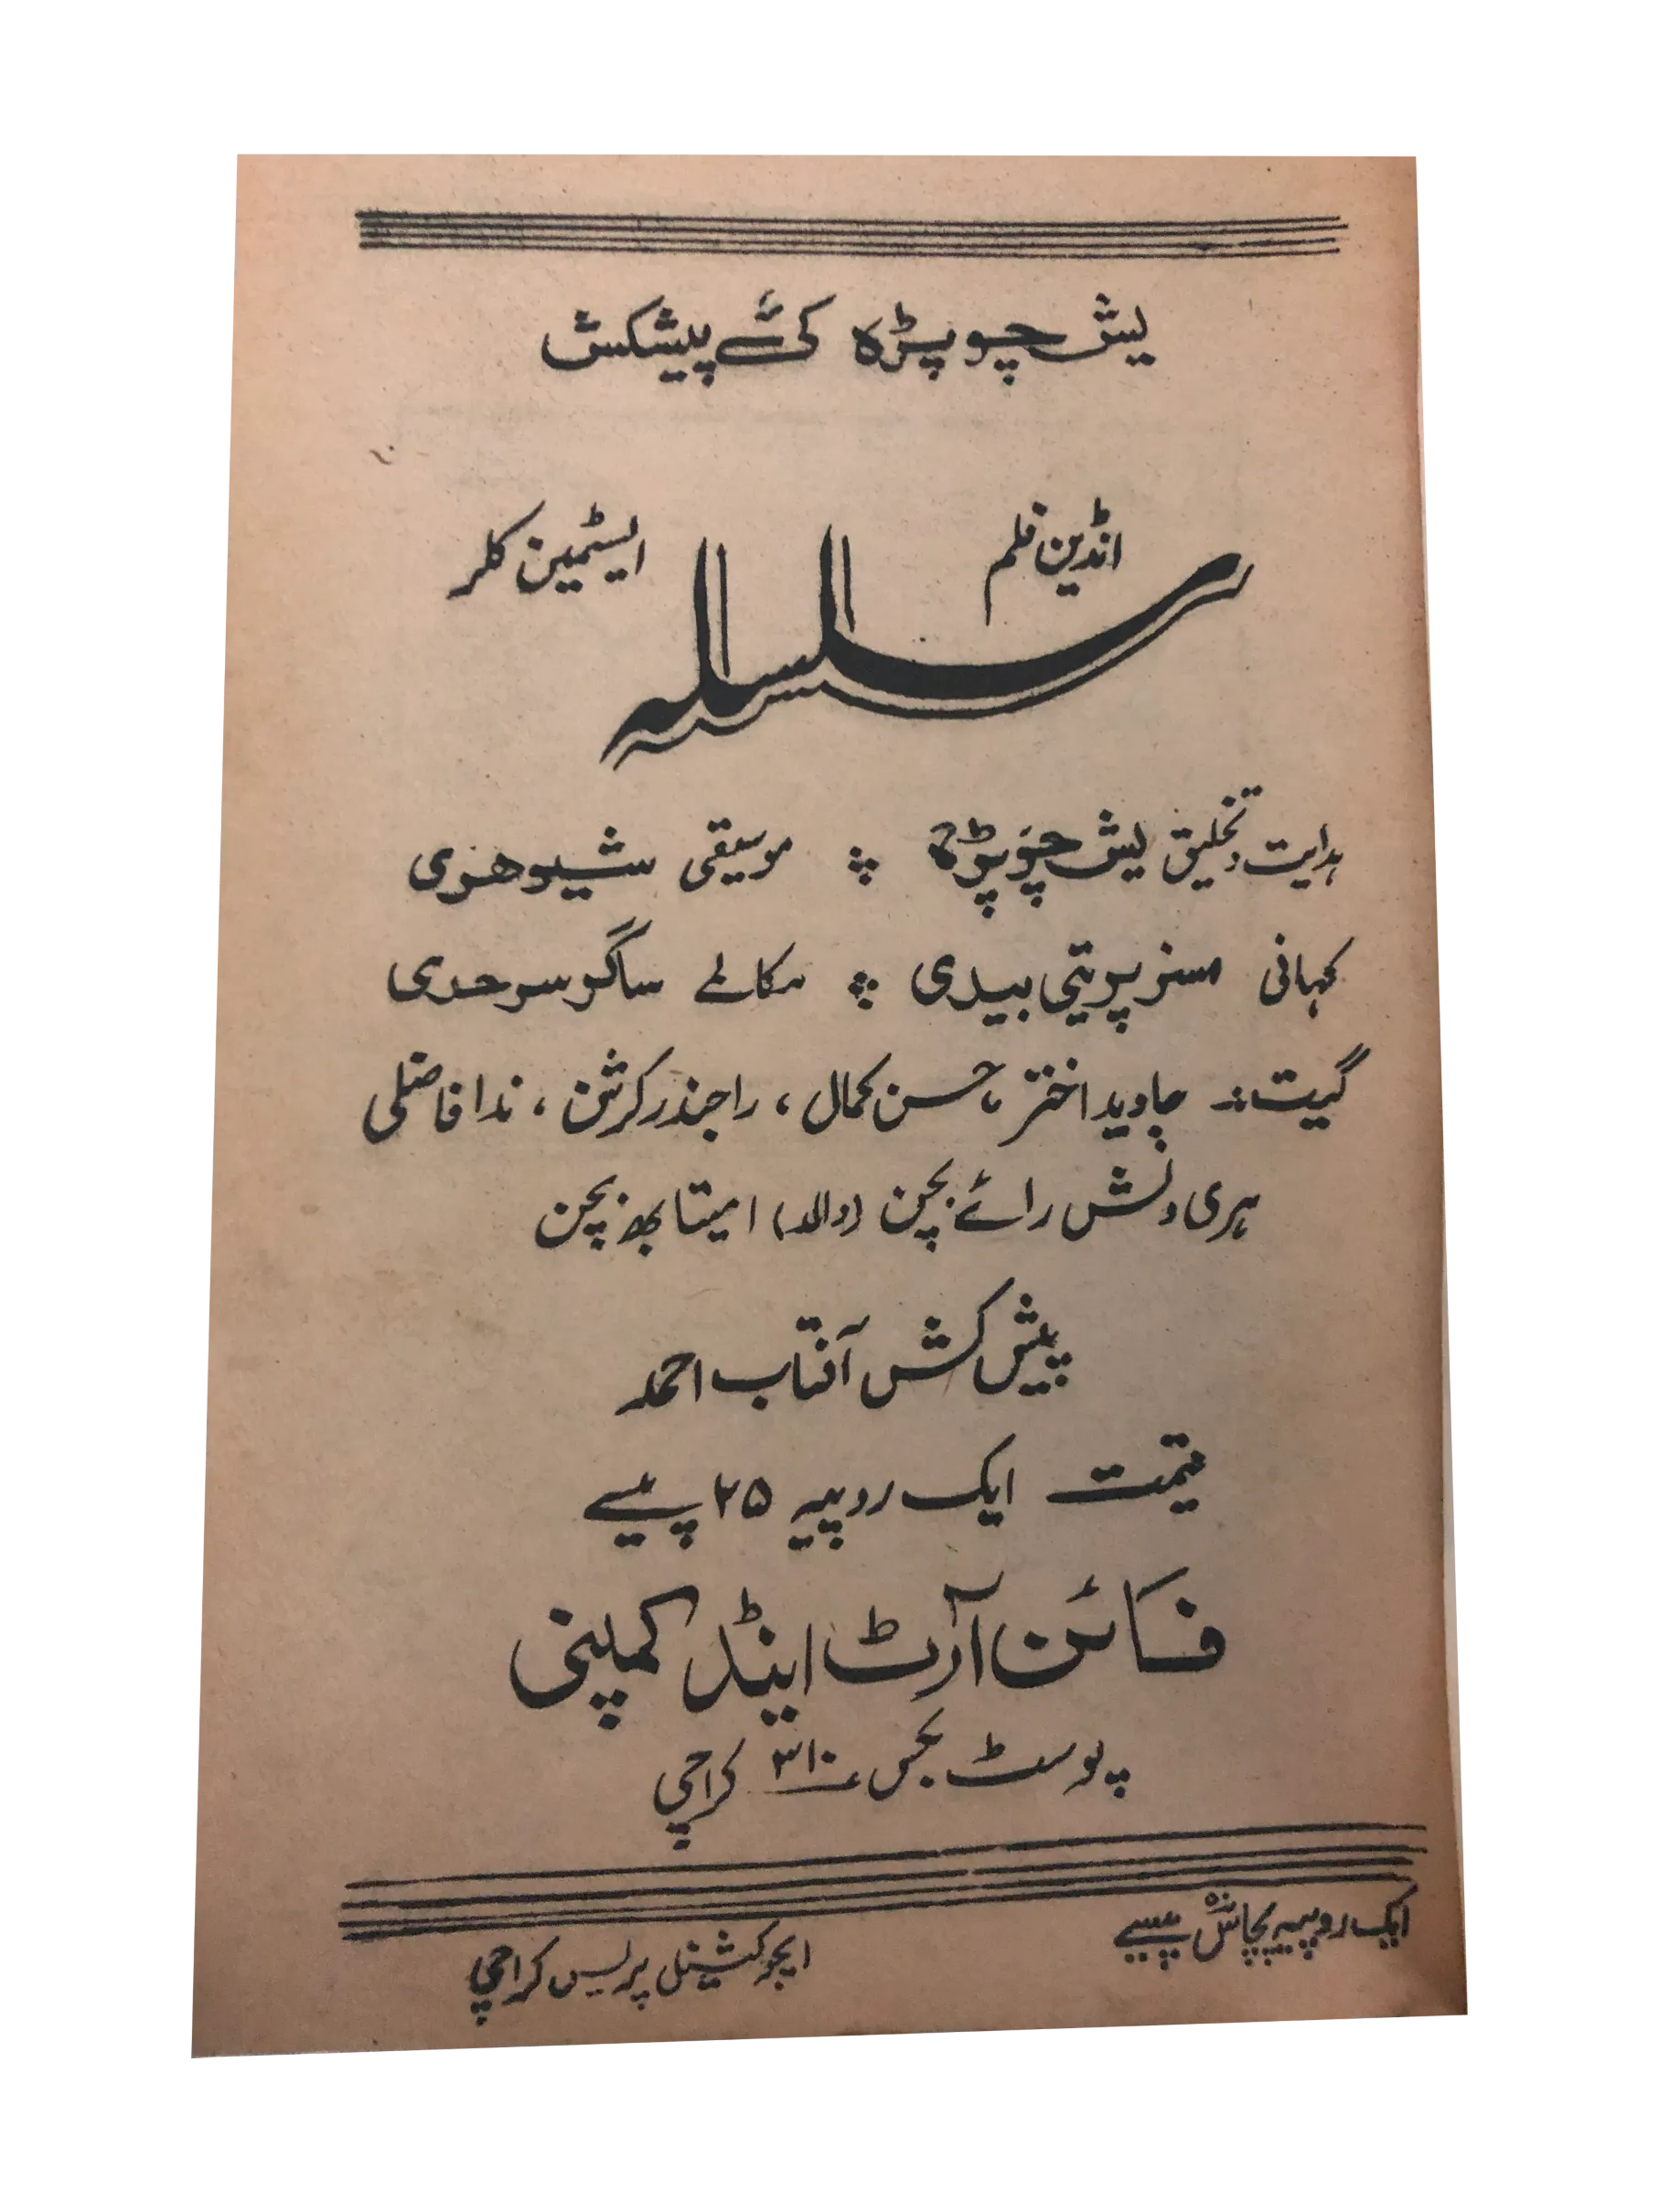 یش چوپڑہ کی پیشکش
انڈین فلم
ایسٹمین کلر
سلسلہ
ہدایت و تخلیق یش چوپڑہ ؞ موسیقی شیوھری
کہانی مسز پریتی بیدی ؞ مکالمے ساگر سرحدی
گیت :۔ جاوید اختر ، حسن کمال ، راجندر کرشن ، ندا فاضلی
ہری ونش رائے بچن (والد) امیتابھ بچن
پیش کش آفتاب احمد
قیمت ایک روپیہ ۲۵ پیسے
فائن آرٹ اینڈ کمپنی
پوسٹ بکس ؀۳۱۰ کراچی
ایک روپیہ پچاس پیسے
ایجوکیشنل پریس کراچی